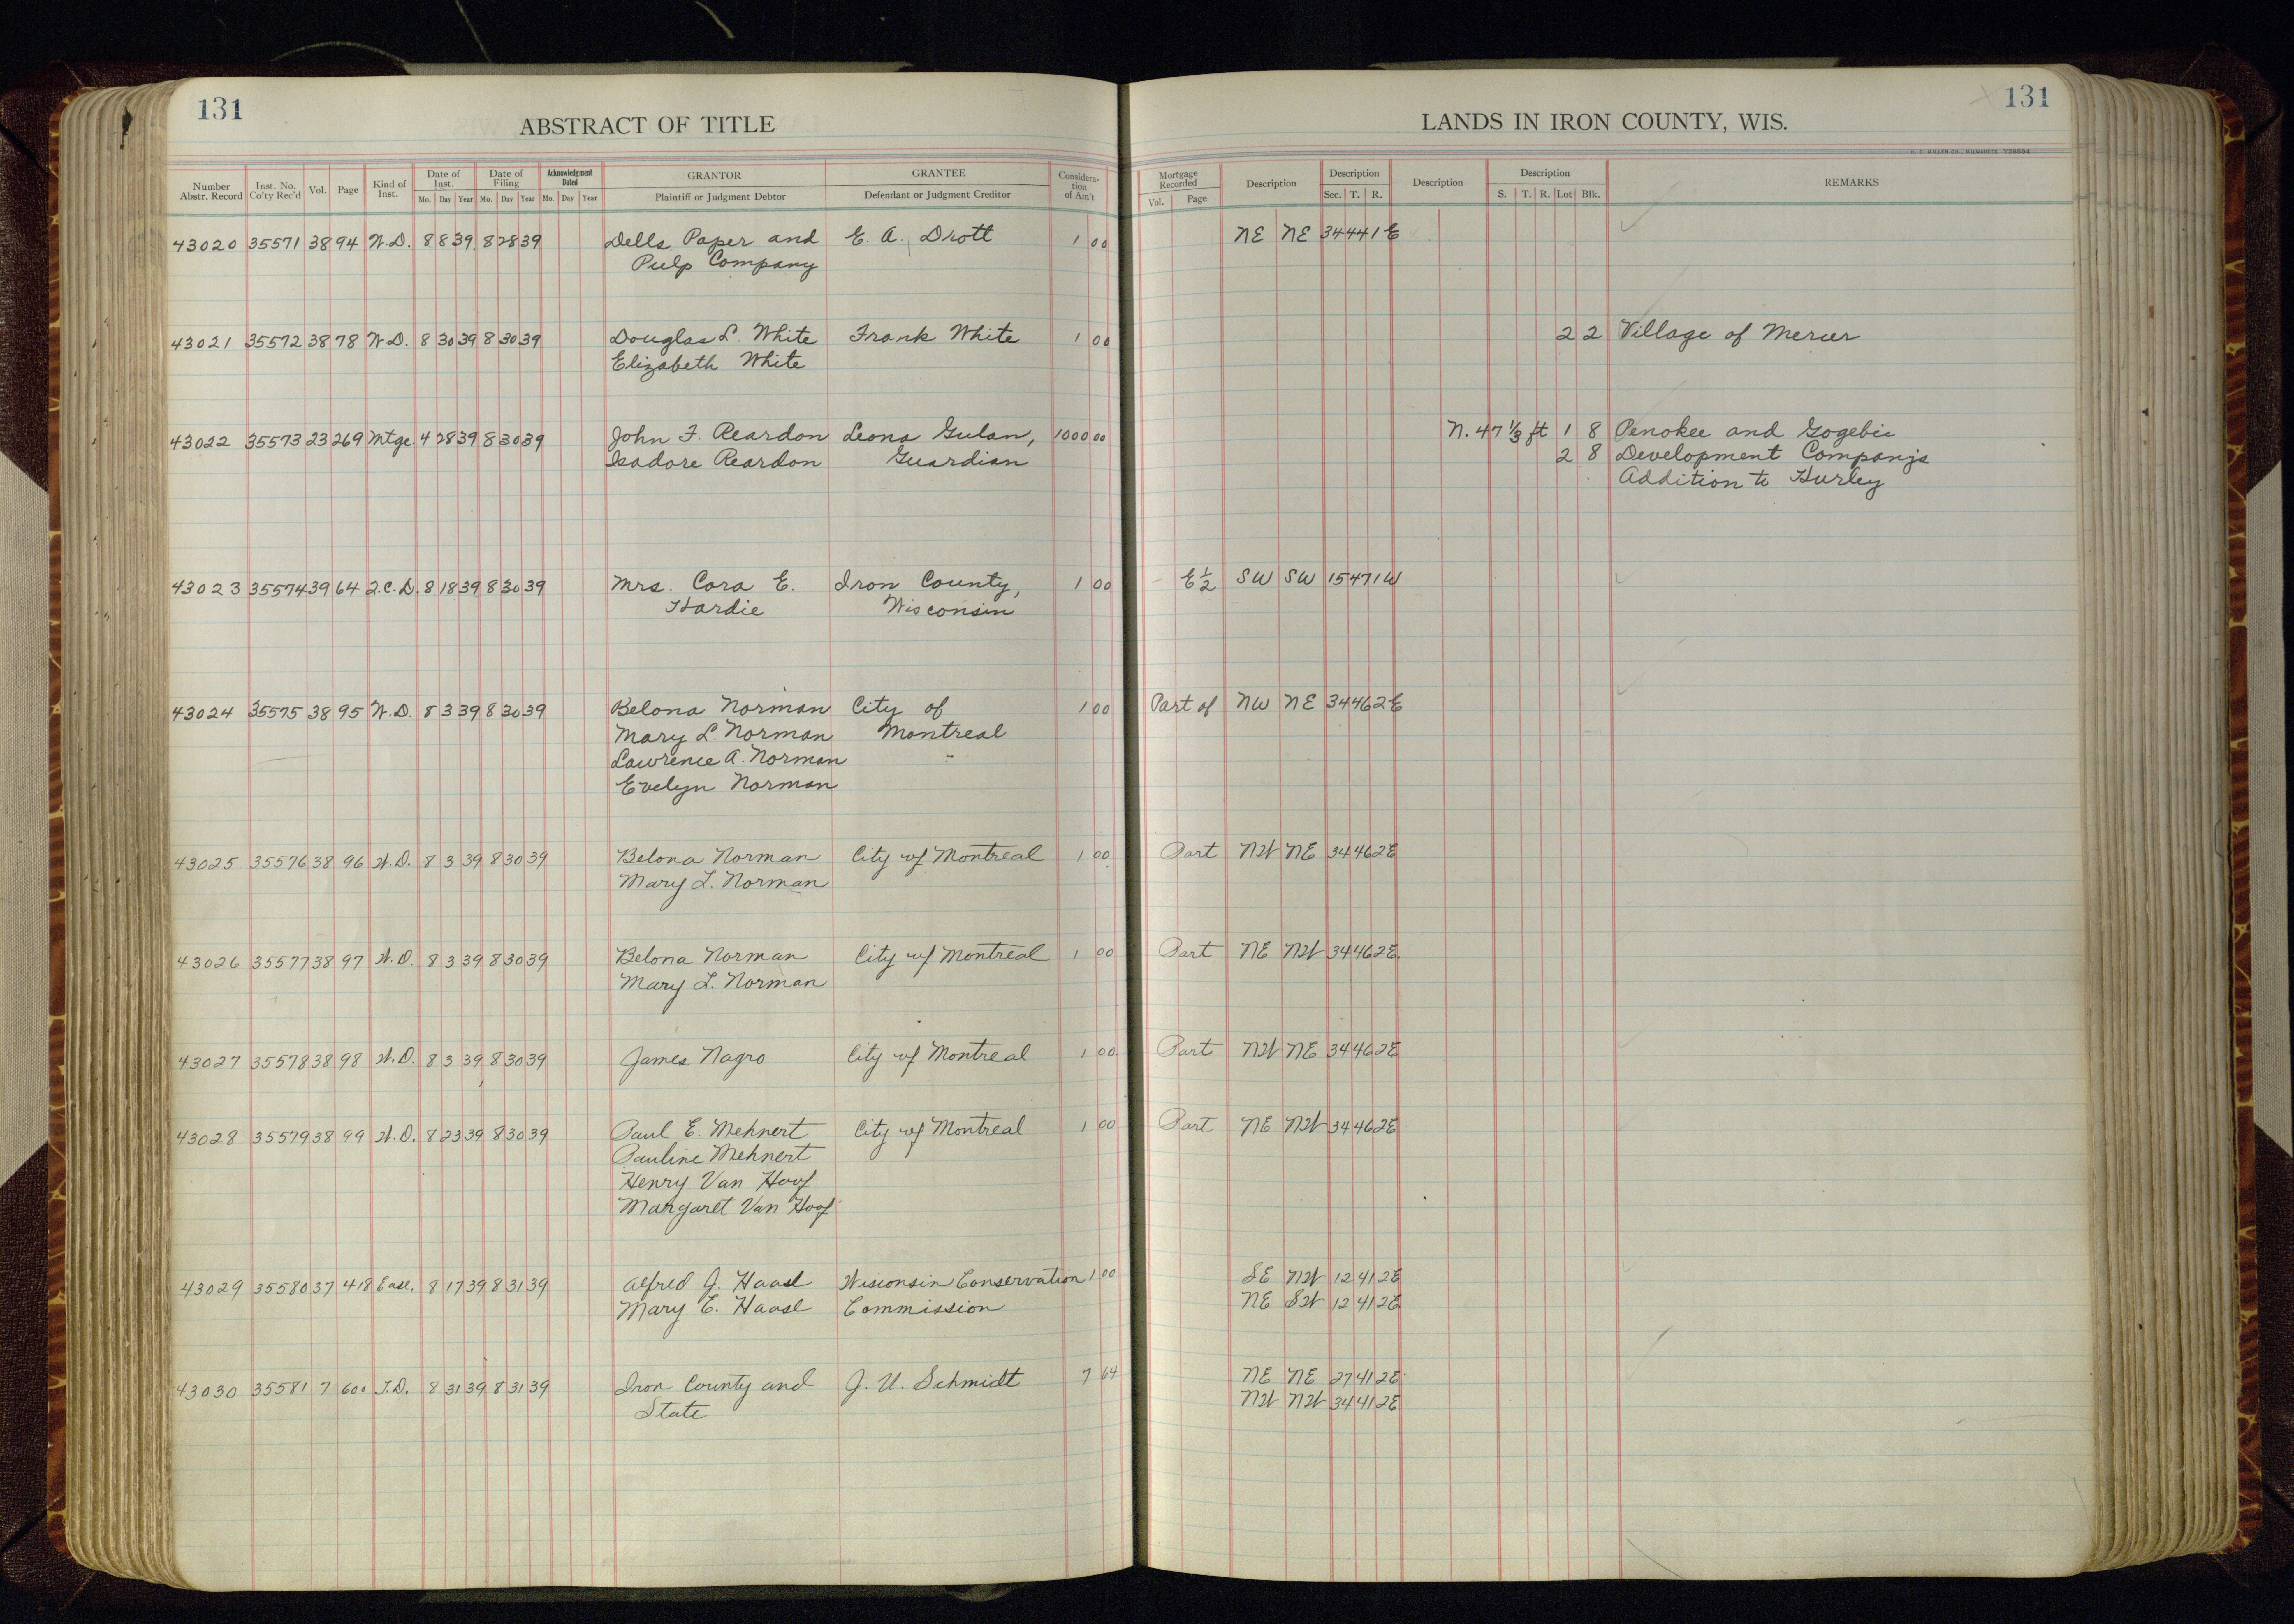 131
ABSTRACT OF TITLE
Number Abstr. Record | Inst. No. Co'ty Rec'd | Vol. | Page | Kind of Inst. | Date of Inst. Mo. Day Year | Date of Filing Mo. Day Year | Acknowledgment Dated Mo. Day Year | GRANTOR Plaintiff or Judgment Debtor | GRANTEE Defendant or Judgment Creditor | Considera-tion of Am't
43020 35571 38 94 W.D. 8 8 39 8 28 39 Dells Paper and E. A. Drott 1 00
Pulp Company
43021 35572 38 78 W.D. 8 30 39 8 30 39 Douglas L. White Frank White 1 00
Elizabeth White
43022 35573 23 269 Mtge. 4 28 39 8 30 39 John F. Reardon Leona Gulan, 1000 00
Isadore Reardon Guardian
43023 35574 39 64 Q.C.D. 8 18 39 8 30 39 Mrs. Cora E. Iron County, 1 00
Hardie Wisconsin
43024 35575 38 95 W.D. 8 3 39 8 30 39 Belona Norman City of 1 00
Mary L. Norman Montreal
Lawrence A. Norman
Evelyn Norman
43025 35576 38 96 W.D. 8 3 39 8 30 39 Belona Norman City of Montreal 1 00
Mary L. Norman
43026 35577 38 97 W.D. 8 3 39 8 30 39 Belona Norman City of Montreal 1 00
Mary L. Norman
43027 35578 38 98 W.D. 8 3 39 8 30 39 James Nagro City of Montreal 1 00
43028 35579 38 99 W.D. 8 23 39 8 30 39 Paul E. Mehnert City of Montreal 1 00
Pauline Mehnert
Henry Van Hoof
Margaret Van Hoof
43029 35580 37 418 Ease. 8 17 39 8 31 39 Alfred J. Haasl Wisconsin Conservation 1 00
Mary E. Haasl Commission
43030 35581 7 600 T.D. 8 31 39 8 31 39 Iron County and J. U. Schmidt 7 64
State
131
LANDS IN IRON COUNTY, WIS.
Mortgage Recorded Vol. Page | Description | Description Sec. T. R. | Description | Description S. T. R. Lot Blk. | REMARKS
NE NE 34 44 1E
2 2 Village of Mercer
N. 47 1/3 ft 1 8 Penokee and Gogebic
2 8 Development Company's
Addition to Hurley
E 1/2 SW SW 15 47 1W
Part of NW NE 34 46 2E
Part NW NE 34 46 2E
Part NE NW 34 46 2E.
Part NW NE 34 46 2E
Part NE NW 34 46 2E
SE NW 12 41 2E
NE SW 12 41 2E
NE NE 27 41 2E
NW NW 34 41 2E